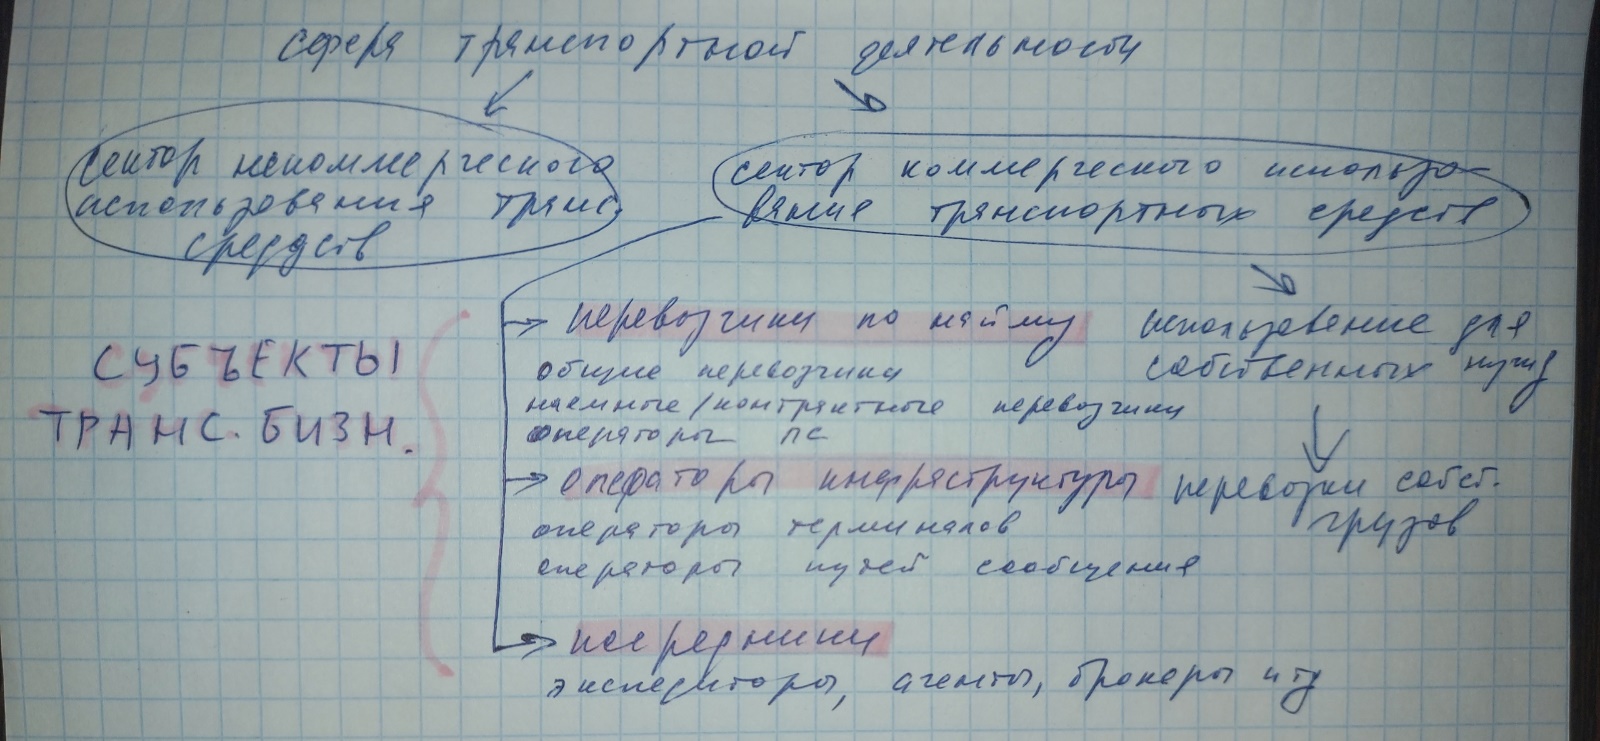 сфера транспортной деятельности
сектор некоммерческого
использования транс.
средств
сектор коммерческого использо-
вания транспортных средств
СУБЪЕКТЫ
ТРАНС. БИЗН.
перевозчики по найму
общие перевозчики
наемные/контрактные перевозчики
операторы ПС
операторы инфраструктуры
операторы терминалов
операторы путей сообщения
посредники
экспедиторы, агенты, брокеры и тд
использование для
собственных нужд
перевозки собст.
грузов